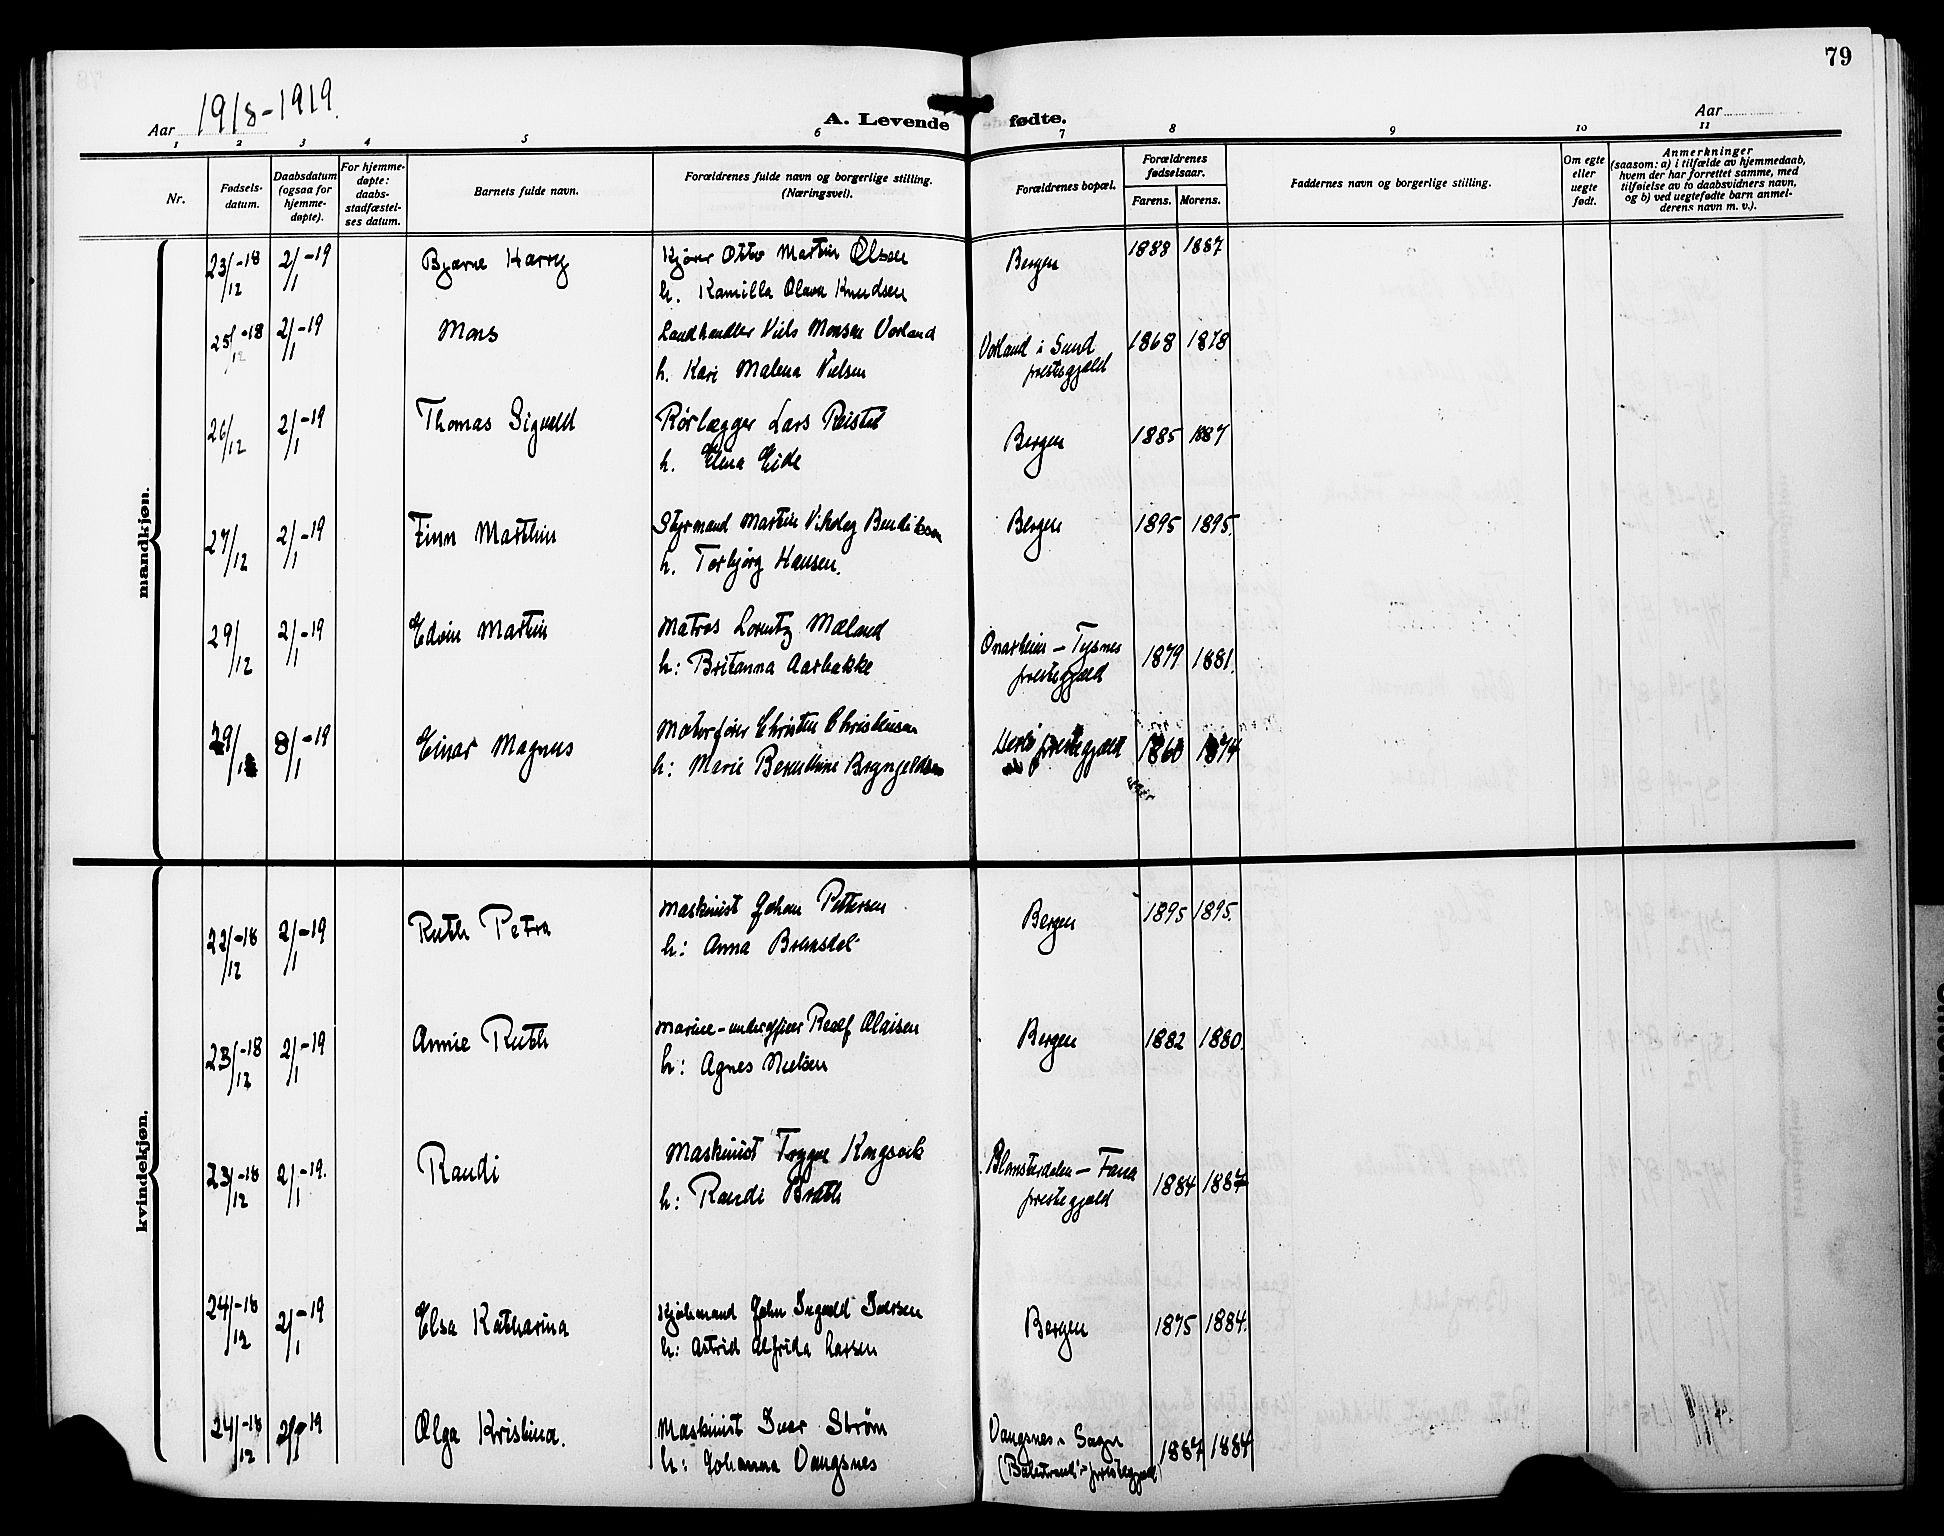 79
Aar 1918-1919.
A. Levende fødte.
Aar
1 2 3 4 5 6 7 8 9 10 11
Nr.
Fødsels-
datum.
Daabsdatum
(ogsaa for
hjemme-
døpte).
For hjemme-
døpte:
daabs-
stadfæstel-
ses datum.
Barnets fulde navn.
Forældrenes fulde navn og borgerlige stilling.
(Næringsvei).
Forældrenes bopæl.
Forældrenes
fødselsaar.
Farens. Morens.
Faddernes navn og borgerlige stilling.
Om egte
eller
uegte
født.
Anmerkninger
(saasom: a) i tilfælde av hjemmedaab,
hvem der har forrettet samme, med
tilføielse av to daabsvidners navn,
og b) ved uegtefødte barn anmel-
derens navn m. v.).
mandkjøn.
23/12-18 2/1-19 Bjarne Harry Kjører Otto Martin Olsen Bergen 1888 1887
h. Kamilla Olava Knudsen
25/12-18 2/1-19 Mons Landhandler Niels Monsen Vorland Vorland i Sund 1868 1878
h. Kari Malena Nielsen prestegjeld
26/12 2/1-19 Thomas Sigvald Rørlægger Lars Reistel Bergen 1885 1887
h. Elina Eide
27/12 2/1-19 Finn Marthin Styrmand Martin Nikolay Bendiksen Bergen 1895 1895.
h. Torbjørg Hansen.
29/12 2/1-19 Edvin Martin Matros Lorentz Mæland Onarheim - Tysnes 1879 1881.
h: Britanna Aarbakke prestegjæld
29/1 8/1-19 Einar Magnus Motorfører Christen Christensen prestegjæld 1860 1874
h: Marie Berentine Brynjeldsen
kvindekjøn.
22/12-18 2/1-19 Ruth Petra Maskinist Johan Pettersen Bergen 1895 1895.
h: Anna Bransdal
23/12-18 2/1-19 Annie Ruth Marine-underofficer Rolf Olaisen Bergen 1882 1880.
h: Agnes Nielsen
23/12-18 2/1-19. Randi Maskinist Trygve Kongsvik Blomsterdalen - Fana 1884 1887
h: Randi Brath prestegjæld
24/12-18 2/1-19 Elsa Katharina Kjøbmand John Ingvald Iversen Bergen 1875 1884.
h: Astrid Alfrida Larsen
24/12-18 2/1-19 Olga Kristina. Maskinist Ivar Strøm Vangsnes i Sogn 1887 1884
h: Johanna Vangsnes (Balestrand prestegjæld)